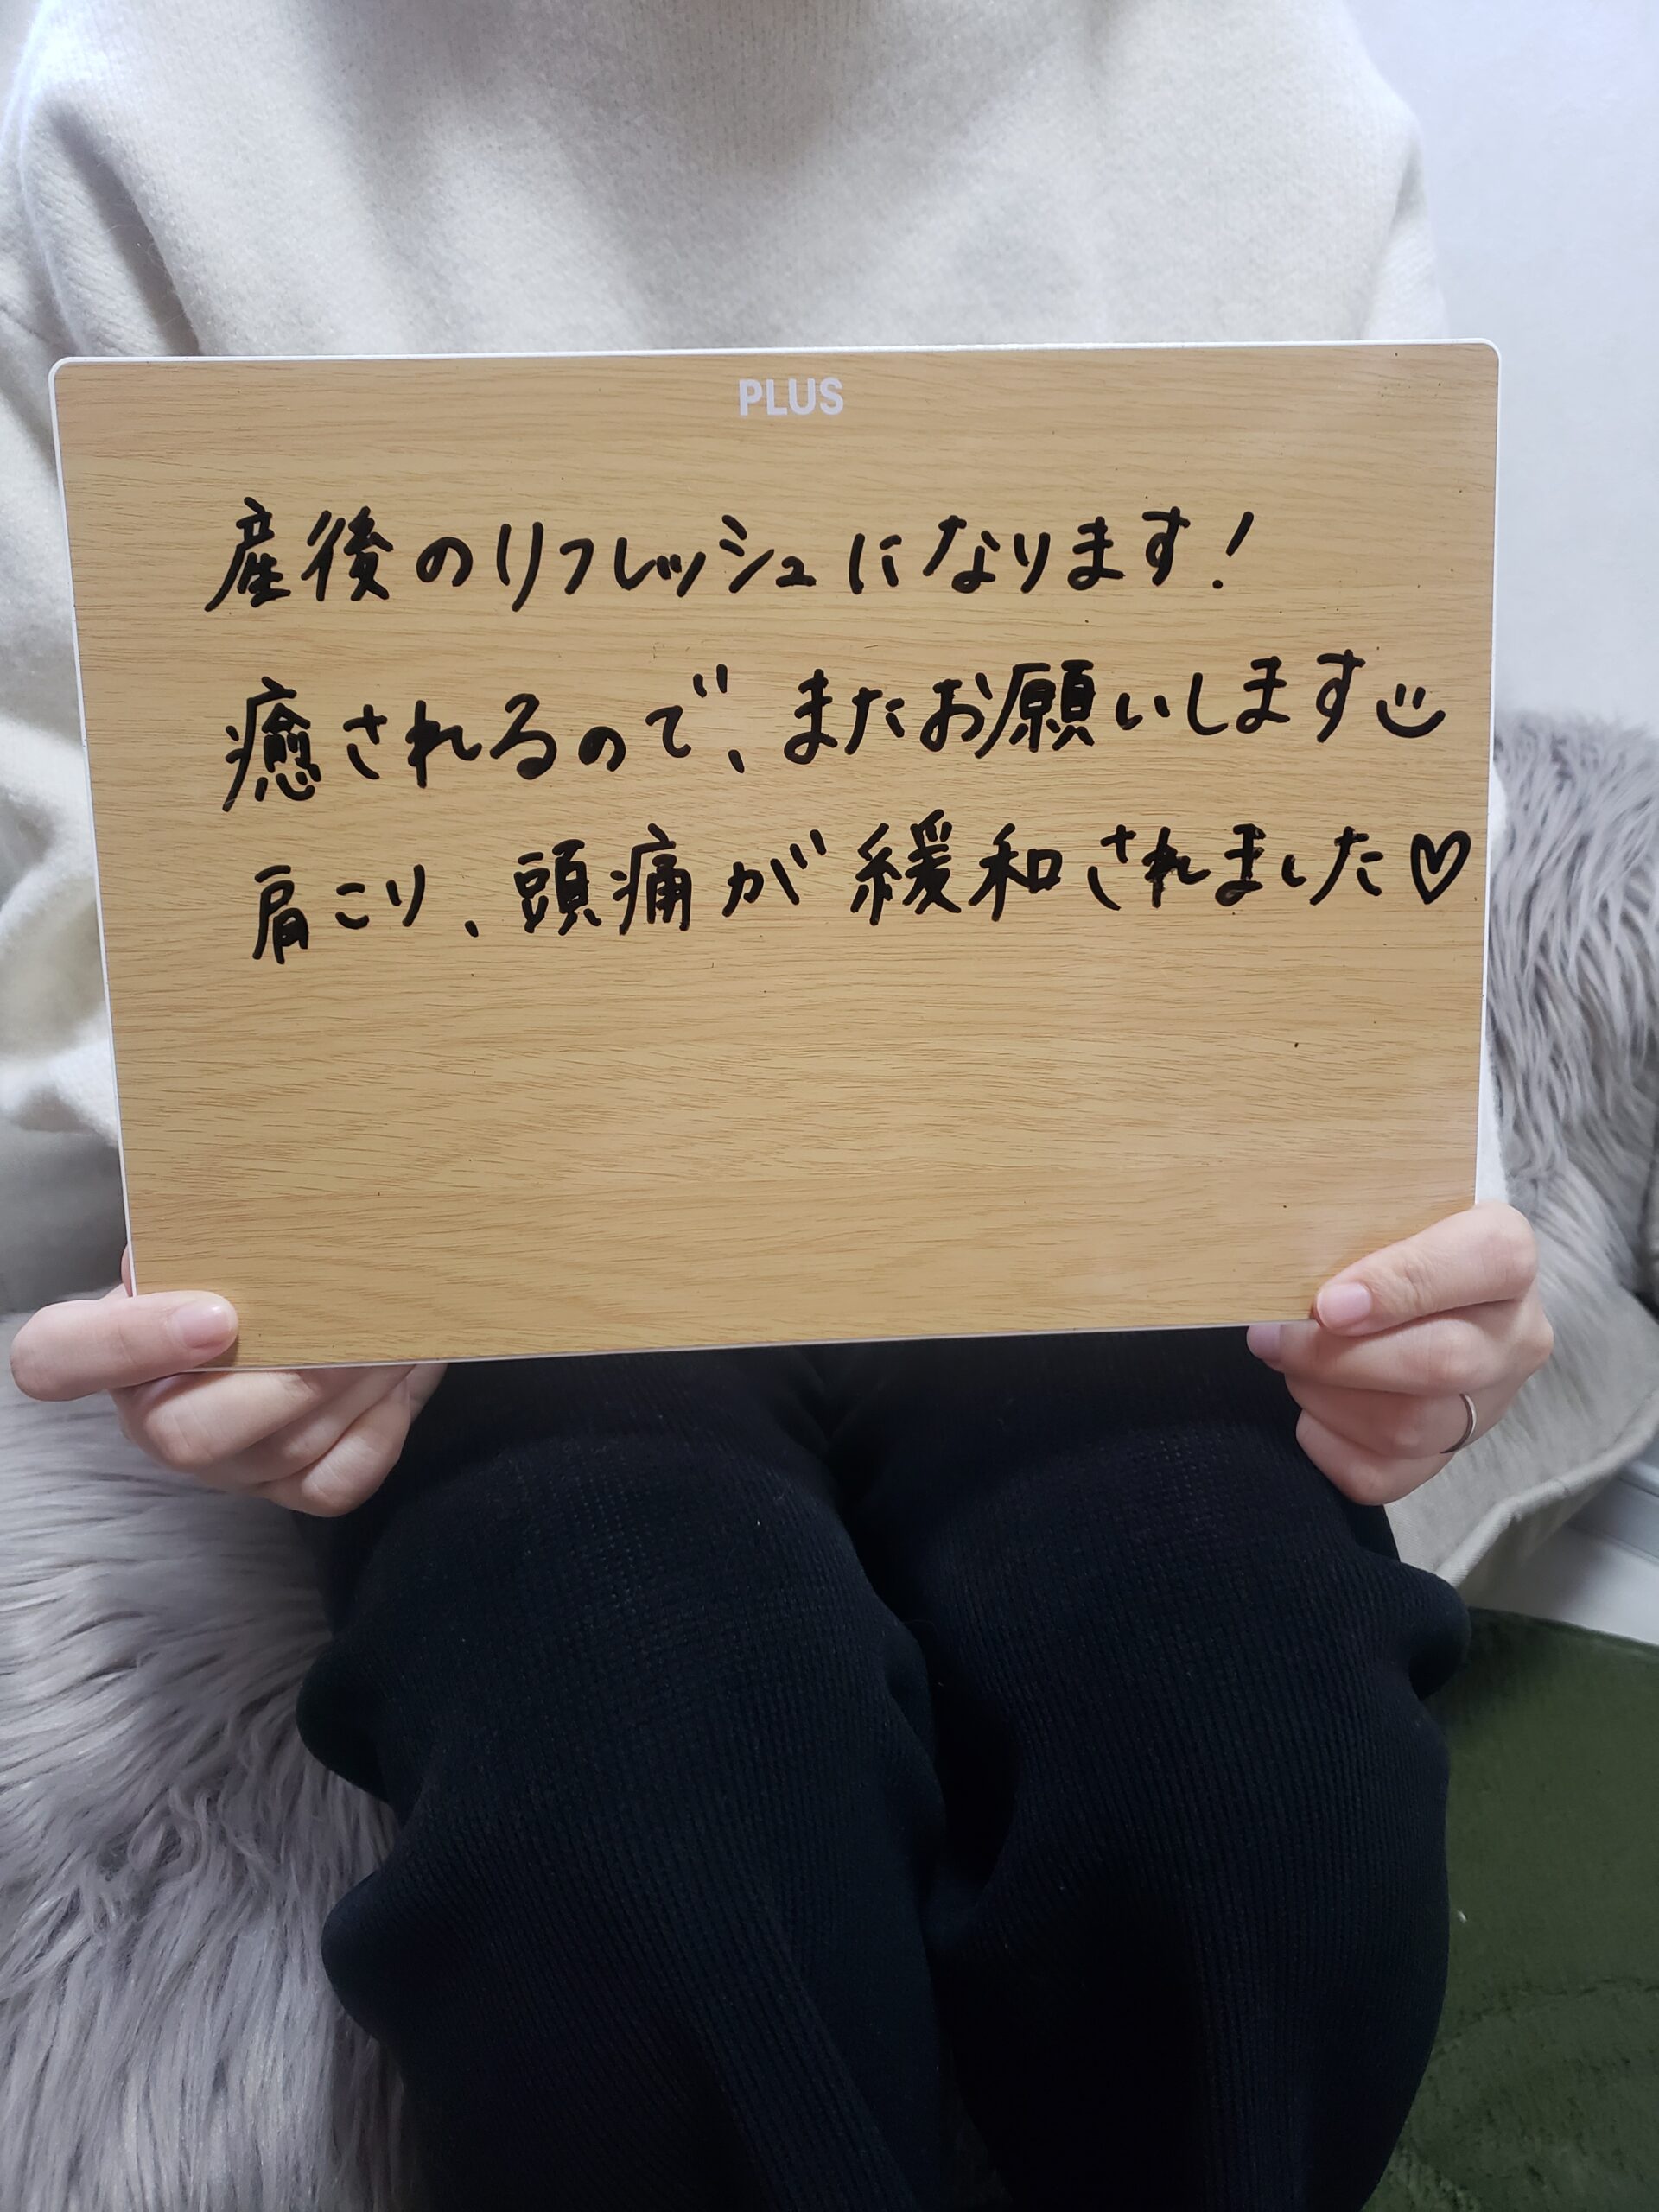 PLUS
産後のリフレッシュになります!
癒されるので、またお願いします
肩こり、頭痛が緩和されました♡